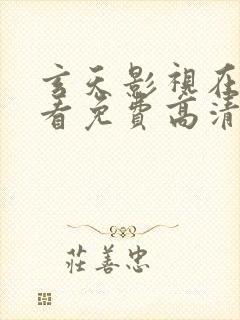 玄天影視在
看免費高清
莊善忠